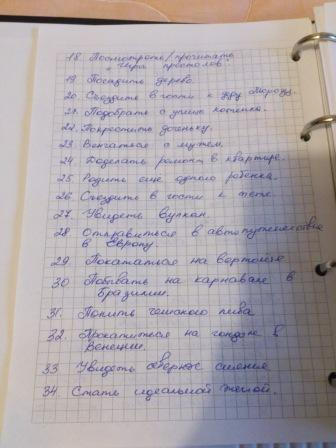 18. Посмотреть/прочитать
"Игра престолов".
19. Посадить дерево.
20. Съездить в гости к Деду Морозу.
21. Подобрать с улицы котенка.
22. Покрестить доченьку.
23. Венчаться с мужем.
24. Доделать ремонт в квартире.
25. Родить еще одного ребенка.
26. Съездить в гости к тете.
27. Увидеть вулкан.
28. Отправиться в автопутешествие
в Европу.
29. Покататься на вертолете
30. Побывать на карнавале в
Бразилии.
31. Попить чешского пива
32. Прокатиться на гондоле в
Венеции.
33 Увидеть северное сияние
34. Стать идеальной женой.